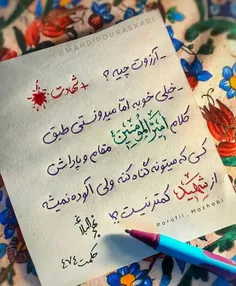 @MAHDIPOURASKARI
- آرزوت چیه ؟
+ شهادت
- خیلی خوبه اما میدونستی طبق
کلام امیرالمومنین مقام و پاداش
کسی که میتونه گناه کنه ولی آلوده نمیشه
از شهید کمتر نیست ؟!
نهج البلاغه
حکمت ۴۷۴
Porofil_Mazhabi